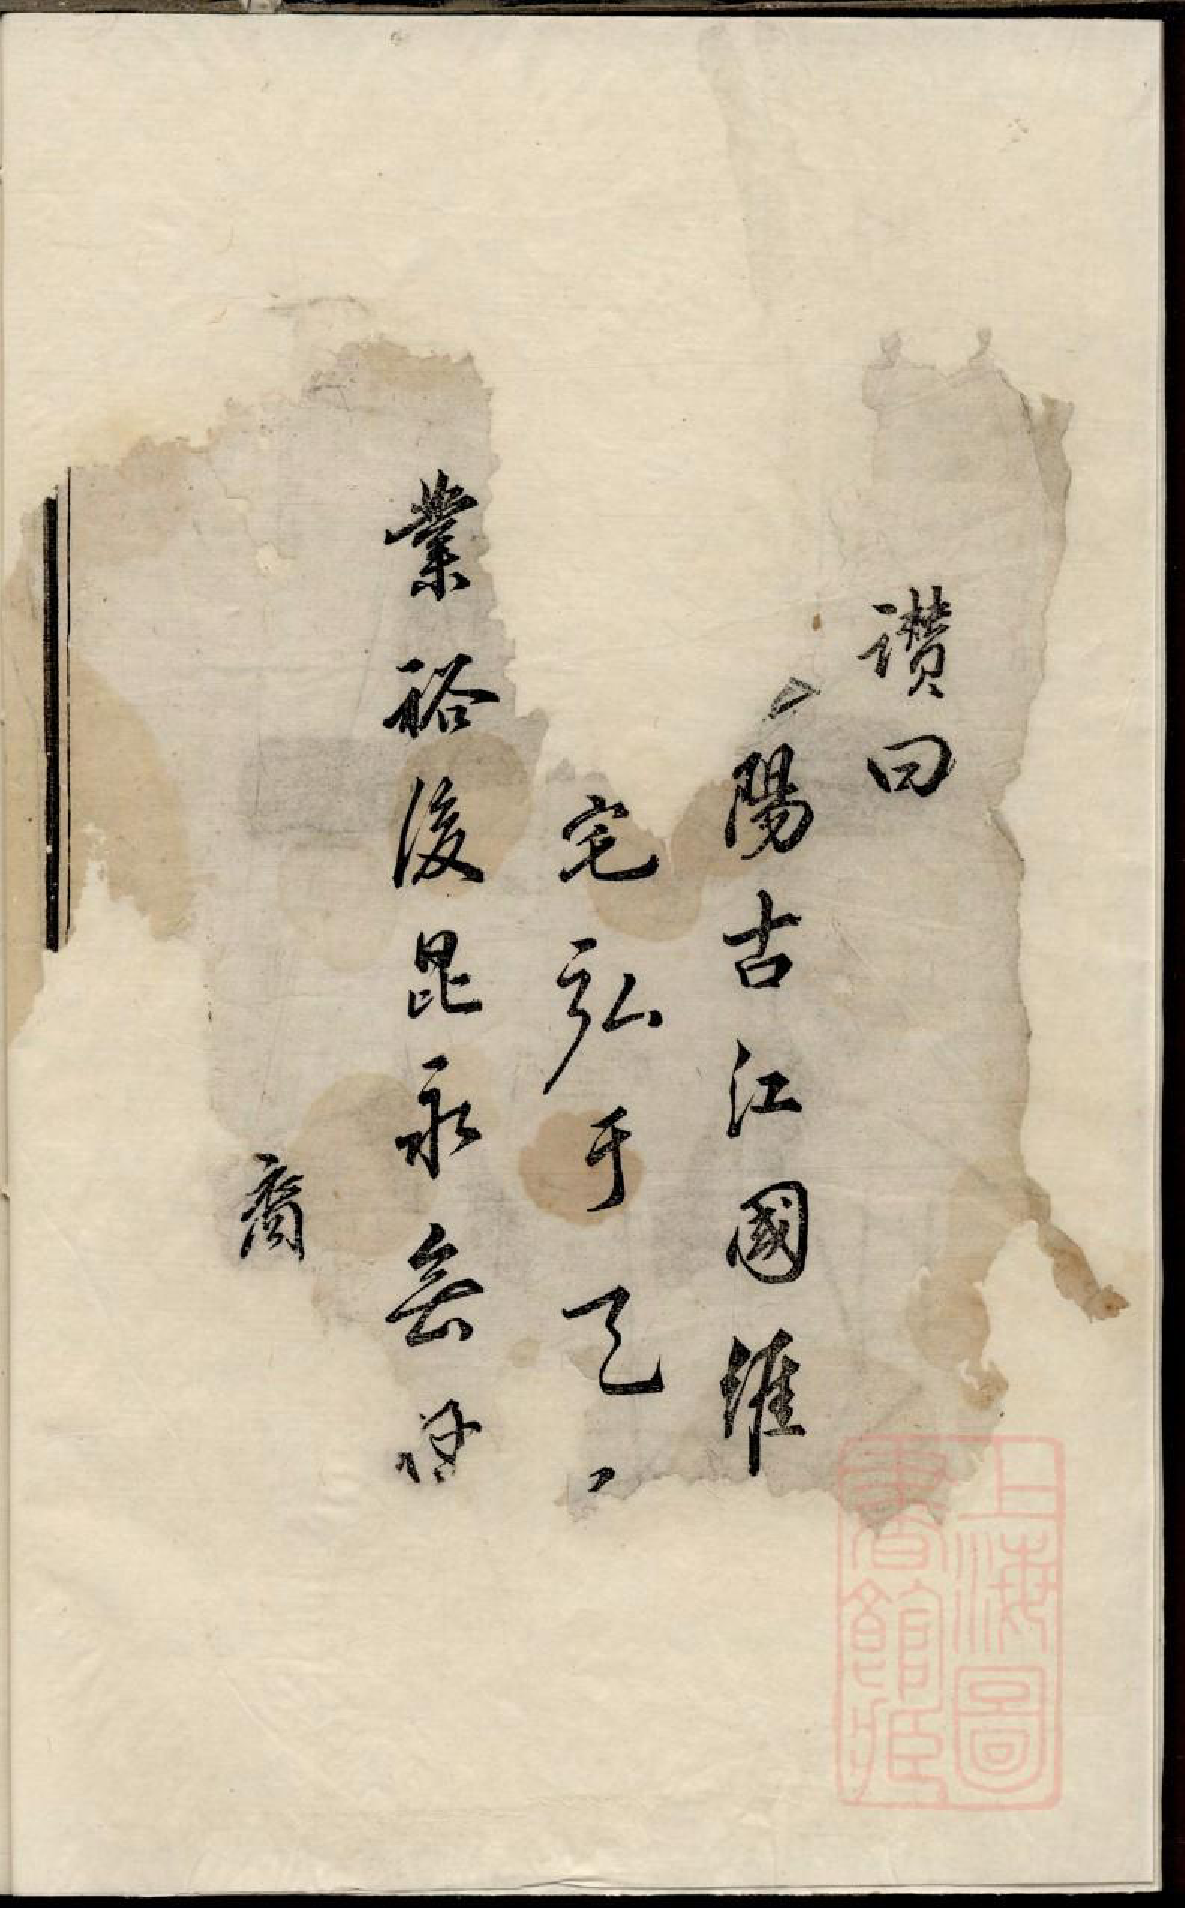 讚曰
陽古江國維
宅弘于
業裕後昆永無
裔
上海圖
書館藏